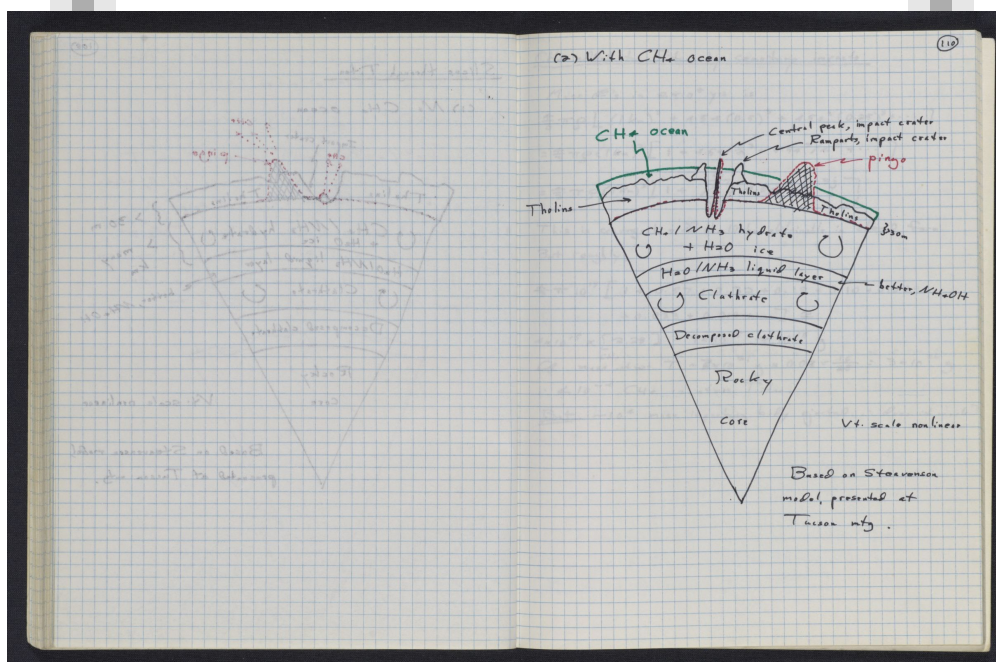 110
(2) With CH4 ocean
CH4 ocean
Central peak, impact crater
Ramparts, impact crater
pingo
Tholins
Tholins
Tholins
30m
CH4/NH3 hydrate
+ H2O ice
H2O/NH3 liquid layer
better, NH4OH
Clathrate
Decomposed clathrate
Rocky
Core
Vt. scale nonlinear
Based on Steavenson
model, presented at
Tucson mtg.